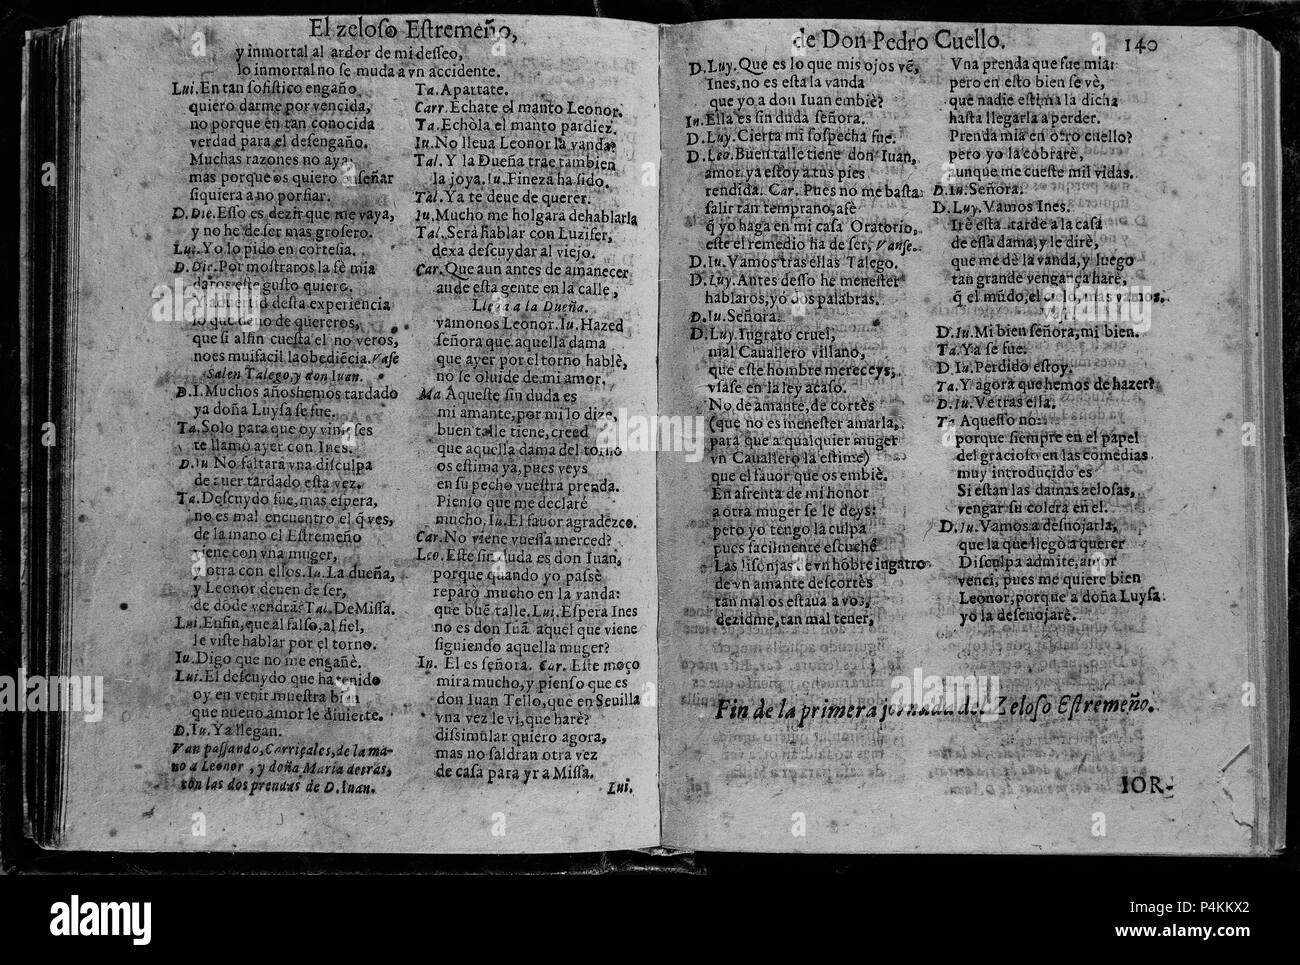 El zeloso Estremeño,
y inmortal al ardor de mi desseo,
lo inmortal no se muda a vn accidente.
Lui. En tan sofistico engaño
quiero darme por vencida,
no porque en tan conocida
verdad para el desengaño.
Muchas razones no aya,
mas porque os quiero enseñar
siquiera a no porfiar.
D. Die. Esso es dezir que me vaya,
y no he de ser mas grosero.
Lui. Yo lo pido en cortesia.
D. Die. Por mostraros la fè mia
daros este gusto quiero.
Y aduertid desta experiencia
lo que deuo de quereros,
que si al fin cuesta el no veros,
no es mui facil la obediẽcia. Vase
Salen Talego, y don Iuan.
D. I. Muchos años hemos tardado
ya doña Luysa se fue.
Ta. Solo para que oy viniesses
te llamo ayer con Ines.
D. Iu No faltarà vna disculpa
de auer tardado esta vez.
Ta. Descuydo fue, mas espera,
no es mal encuentro el q̃ ves,
de la mano el Estremeño
viene con vna muger,
y otra con ellos. Iu. La dueña,
y Leonor deuen de ser,
de dõde vendrã? Tal. De Missa.
Lui. Enfin, que al falso, al fiel,
le viste hablar por el torno.
Iu. Digo que no me engañè.
Lui. El descuydo que ha tenido
oy en venir muestra bien
que nueuo amor le diuierte.
D. Iu. Ya llegan.
Van passando, Carriçales, de la ma-
no a Leonor, y doña Maria detras,
con las dos prendas de D. Iuan.
Ta. Apartate.
Carr. Echate el manto Leonor.
Ta. Echòla el manto pardiez.
Iu. No lleua Leonor la vanda?
Tal. Y la Dueña trae tambien
la joya. Iu. Fineza ha sido.
Tal. Ya te deue de querer.
Iu. Mucho me holgara de hablarla
Tal. Serà hablar con Luzifer,
dexa descuydar al viejo.
Car. Que aun antes de amanecer
ande esta gente en la calle,
Llega a la Dueña.
vamonos Leonor. Iu. Hazed
señora que aquella dama
que ayer por el torno hablè,
no se oluide de mi amor.
Ma Aqueste sin duda es
mi amante, por mi lo dize,
buen talle tiene, creed
que aquella dama del torno
os estima ya, pues veys
en su pecho vuestra prenda.
Pienso que me declarè
mucho, Iu. El fauor agradezco.
Car. No viene vuessa merced?
Leo. Este sin duda es don Iuan,
porque quando yo passè
reparò mucho en la vanda:
que buẽ talle. Lui. Espera Ines
no es don Iuã aquel que viene
siguiendo aquella muger?
In. El es señora. Car. Este moço
mira mucho, y pienso que es
don Iuan Tello, que en Seuilla
vna vez le vi, que harè?
dissimular quiero agora,
mas no saldran otra vez
de casa para yr a Missa.
Lui.
de Don Pedro Cuello. 140
D. Luy. Que es lo que mis ojos vẽ,
Ines, no es esta la vanda
que yo a don Iuan embiè?
In. Ella es sin duda señora.
D. Luy. Cierta mi sospecha fue.
D. Leo. Buen talle tiene don Iuan,
amor ya estoy a tus pies
rendida. Car. Pues no me basta
salir tan temprano, a fè
q̃ yo haga en mi casa Oratorio,
este el remedio ha de ser, Vanse.
D. Iu. Vamos tras ellas Talego.
D. Luy. Antes desso he menester
hablaros, yo dos palabras.
D. Iu. Señora.
D. Luy. Ingrato cruel,
mal Cauallero villano,
que este hombre mereceys,
vsase en la ley acaso.
No de amante, de cortès
(que no es menester amarla,
para que a qualquier muger
vn Cauallero la estime)
que el fauor que os embiè.
En afrenta de mi honor
a otra muger se le deys:
pero yo tengo la culpa
pues facilmente escuchè
Las lisonjas de vn hõbre ingrato
de vn amante descortès
tan mal os estaua a vos,
dezidme, tan mal tener,
Vna prenda que fue mia:
pero en esto bien se vè,
que nadie estima la dicha
hasta llegarla a perder.
Prenda mia en otro cuello?
pero yo la cobrarè,
aunque me cueste mil vidas.
D. Iu. Señora.
D. Luy. Vamos Ines.
Irè esta tarde a la casa
de essa dama, y le dirè,
que me dè la vanda, y luego
tan grande vengança harè,
q̃ el mũdo, el cielo, mas vamos.
Vase.
D. Iu. Mi bien señora, mi bien.
Ta. Ya se fue.
D. Iu. Perdido estoy.
Ta. Y agora que hemos de hazer?
D. Iu. Ve tras ella.
Ta Aquesso no:
porque siempre en el papel
del gracioso en las comedias
muy introducido es
Si estan las damas zelosas,
vengar su colera en el.
D. Iu. Vamos a desnojarla,
que la que llegò a querer
Disculpa admite, amor
venci, pues me quiere bien
Leonor, porque a doña Luysa
yo la desenojarè.
Fin de la primera jornada del Zeloso Estremeño.
IOR-
alamy
Image ID: P4KKX2
www.alamy.com